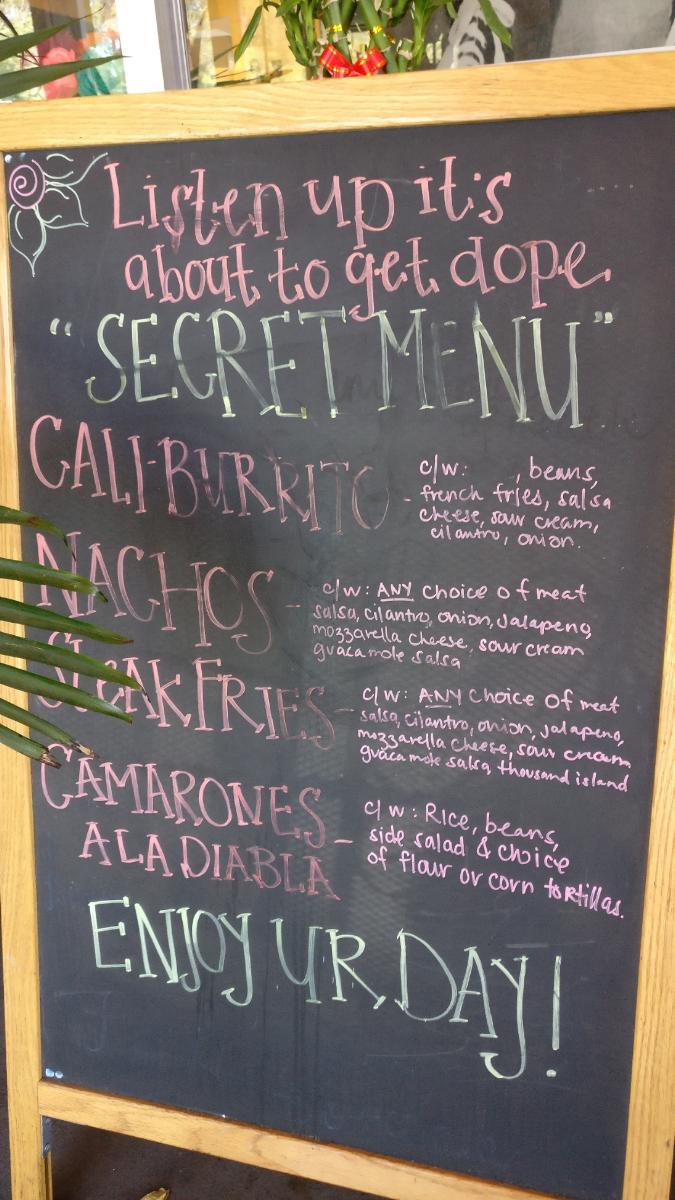 Listen up it's
about to get dope
"SECRET MENU"
CALI-BURRITO - c/w: , beans,
french fries, salsa
cheese, sour cream,
cilantro, onion.
NACHOS - c/w: ANY choice of meat
salsa, cilantro, onion, Jalapeno,
mozzarella cheese, sour cream
guacamole salsa
STEAK FRIES - c/w: ANY choice of meat
salsa, cilantro, onion, jalapeno,
mozzarella cheese, sour cream
guacamole salsa, thousand island
CAMARONES
A LA DIABLA - c/w: Rice, beans,
side salad & choice
of flour or corn tortillas.
ENJOY UR DAY!